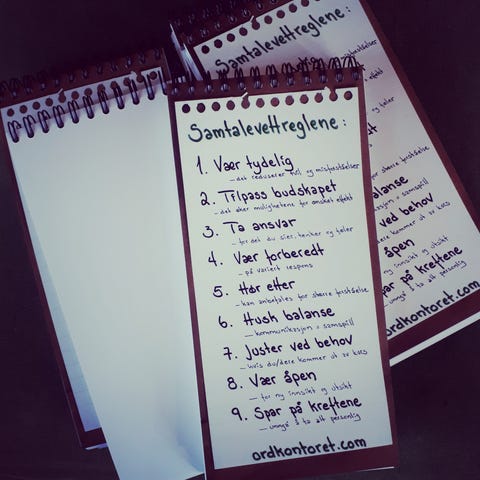 Samtalevettreglene:
1. Vær tydelig
– det reduserer feil og misforståelser
2. Tilpass budskapet
– det øker mulighetene for ønsket effekt
3. Ta ansvar
– for det du sier, tenker og føler
4. Vær forberedt
– på variert respons
5. Hør etter
– kan anbefales for større forståelse
6. Husk balanse
– kommunikasjon = samspill
7. Juster ved behov
– hvis du/dere kommer ut av kurs
8. Vær åpen
– for ny innsikt og utsikt
9. Spar på kreftene
– unngå å ta alt personlig
ordkontoret.com
Samtalevettreglene:
misforståelser
effekt
og føler
for større forståelse
balanse
samspill
ved behov
kommer ut av kurs
åpen
ny innsikt og utsikt
Spar på kreftene
unngå å ta alt personlig
ordkontoret.com